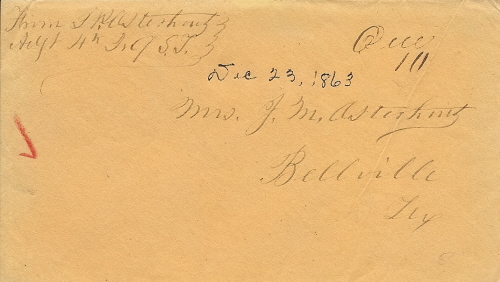 From J. P. Osterhout
Adjt 4th Inf S.T.
Due
10
Dec 23, 1863
Mrs. J. M. Osterhout
Bellville
Tex